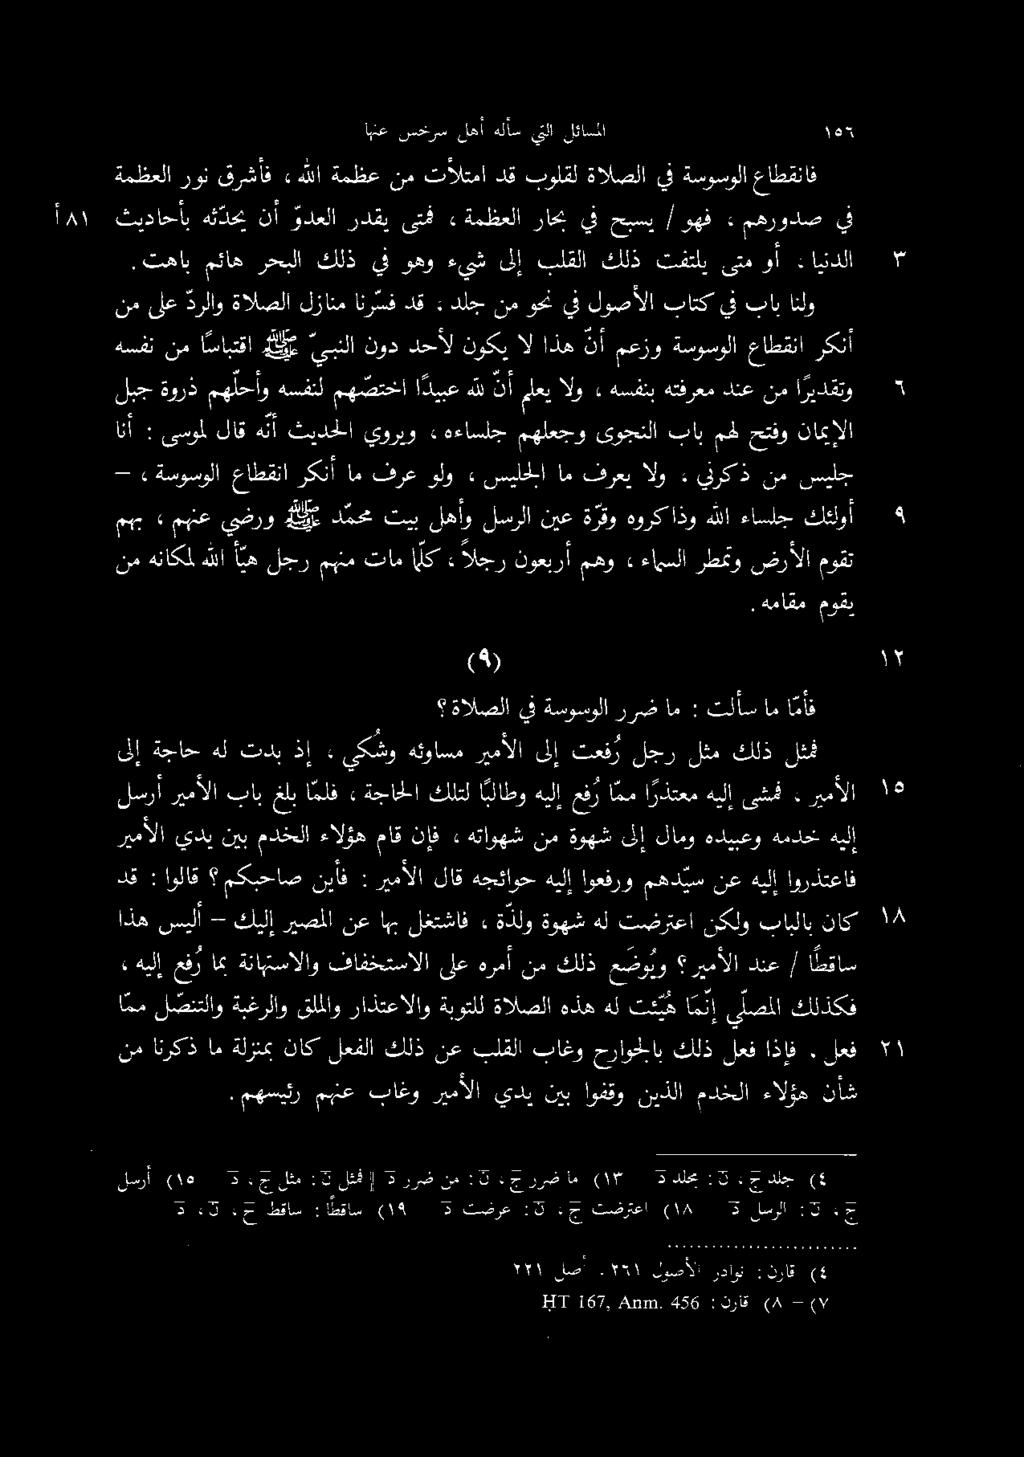 ١٥٦ المسائل التي سأله أهل سرخس عنها
فانقطاع الوسوسة في الصلاة لقلوب قد امتلأت من عظمة الله ، فأشرق نور العظمة
في صدورهم ، فهو / يسبح في بحار العظمة ، فمتى يقدر العدوّ أن يحدّثه بأحاديث ٨١أ
٣ الدنيا ، أو متى يلتفت ذلك القلب إلى شيء وهو في ذلك البحر هائم باهت .
ولنا باب في كتاب الأصول في نحو من جلد ، قد فسّرنا منازل الصلاة والردّ على من
أنكر انقطاع الوسوسة وزعم أنّ هذا لا يكون لأحد دون النبيّ ﷺ اقتباسًا من نفسه
٦ وتقديرًا من عند معرفته بنفسه ، ولا يعلم أنّ لله عبيدًا اختصّهم لنفسه وأحلّهم ذروة جبل
الإيمان وفتح لهم باب النجوى وجعلهم جلساءه ، ويروي الحديث أنّه قال لموسى : أنا
جليس من ذكرني ، ولا يعرف ما الجليس ، ولو عرف ما أنكر انقطاع الوسوسة ، –
٩ أولئك جلساء الله وذاكروه وقرّة عين الرسل وأهل بيت محمّد ﷺ ورضي عنهم ، بهم
تقوم الأرض وتمطر السماء ، وهم أربعون رجلاً ، كلّما مات منهم رجل هيّأ الله لمكانه من
يقوم مقامه .
١٢ (٩)
فأمّا ما سألت : ما ضرر الوسوسة في الصلاة ؟
فمثل ذلك مثل رجل رُفعت إلى الأمير مساوئه وشُكي ، إذ بدت له حاجة إلى
١٥ الأمير ، فمشى إليه معتذرًا ممّا رُفع إليه وطالبًا لتلك الحاجة ، فلمّا بلغ باب الأمير أرسل
إليه خدمه وعبيده ومال إلى شهوة من شهواته ، فإن ماق هؤلاء الخدم بين يدي الأمير
فاعتذروا إليه عن سيّدهم ورفعوا إليه حوائجه قال الأمير : فأين صاحبكم ؟ قالوا : قد
١٨ كان بالباب ولكن اعترضت له شهوة ولذّة ، فاشتغل بها عن المصير إليك – أليس هذا
ساقطًا / عند الأمير ؟ ويُوضَع ذلك من أمره على الاستخفاف والاستهانة بما رُفع إليه ،
فكذلك المصلّي إنّما هُيّئت له هذه الصلاة للتوبة والاعتذار والملق والرغبة والتنصّل ممّا
٢١ فعل . فإذا فعل ذلك بالجوارح وغاب القلب عن ذلك الفعل كان بمنزلة ما ذكرنا من
شأن هؤلاء الخدم الذين وقفوا بين يدي الأمير وغاب عنهم رئيسهم .
٤) جلد ج ، ن : مجلد د ١٣) ما ضرر ج ، ن : من ضرر د || فمثل ن : مثل ج ، د ١٥) أرسل
ج ، ن : الرسل د ١٨) اعترضت ج ، ن : عرضت د ١٩) ساقطًا : ساقط ج ، ن ، د
٤) قارن : نوادر الأصول ٢٦١ ، أصل ٢٢١
٧) – ٨) قارن : HT 167, Anm. 456